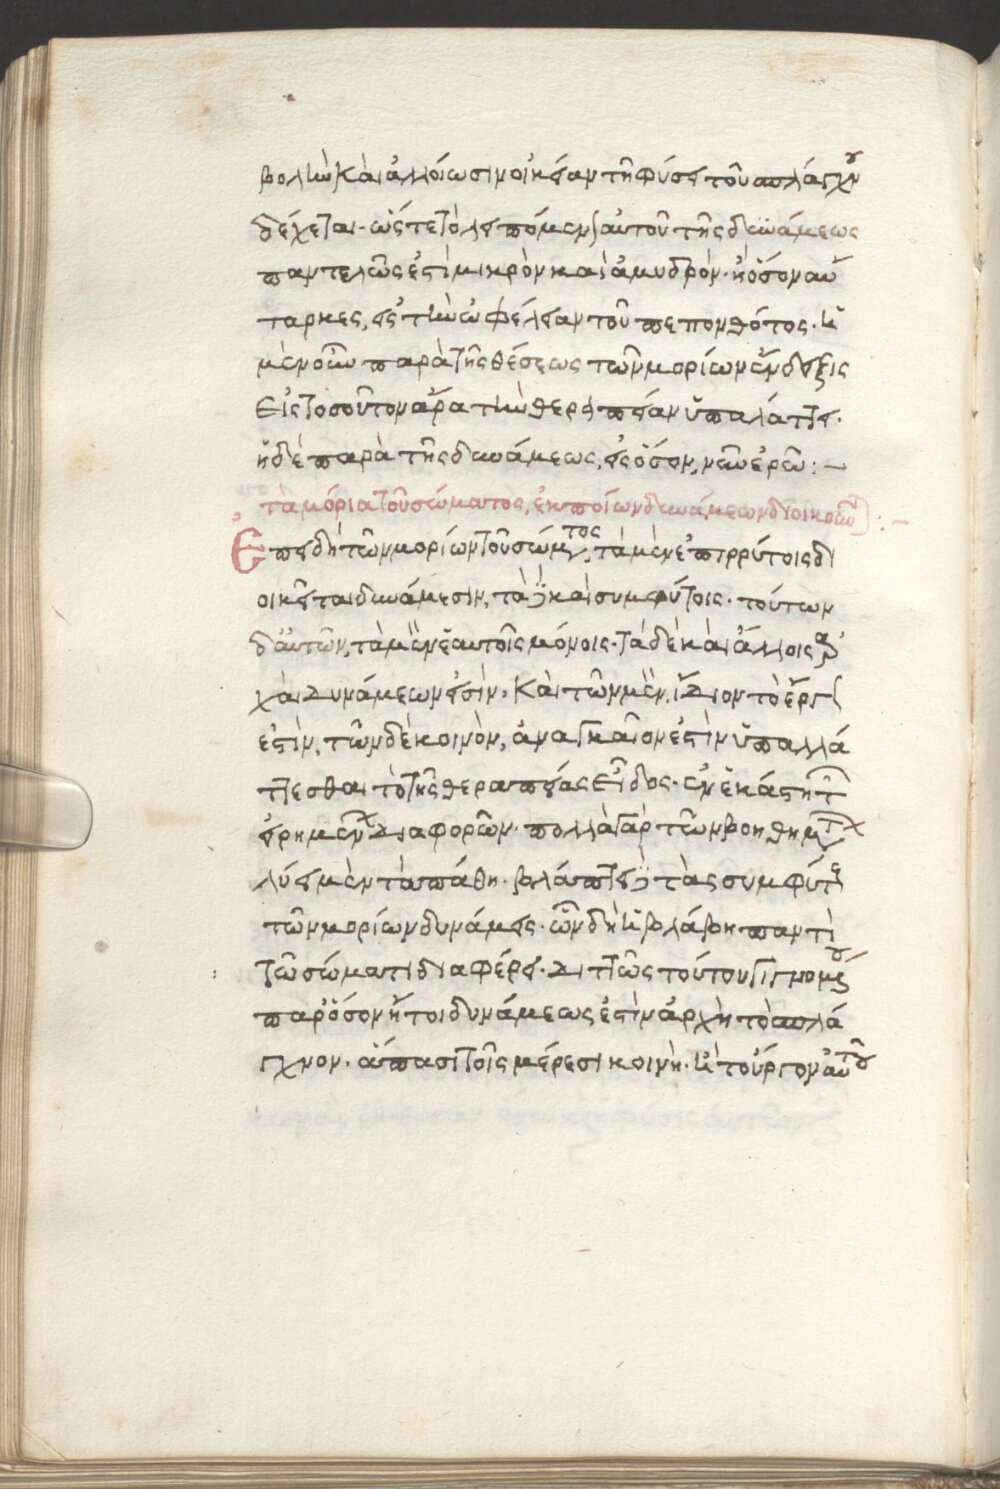 βολὴν καὶ ἀλλοίωσιν οἰκείαν τῇ φύσει τοῦ σπλάγχνου
δέχεται· ὥστε τὸ λειπόμενον αὐτοῦ τῆς δυνάμεως
παντελῶς ἐστὶ μικρὸν καὶ ἀμυδρόν· ἢ ὅσον αὔ
ταρκες, εἰς τὴν ὠφέλειαν τοῦ πεπονθότος· ἡ
μὲν οὖν παρὰ τῆς θέσεως τῶν μορίων ἔνδειξις
εἰς τοσοῦτον ἄρα τὴν θεραπείαν ὑπαλάττει·
ἡ δὲ παρὰ τῆς δυνάμεως, εἰς ὅσον, νῦν ἐρῶ:
τὰ μόρια τοῦ σώματος, ἐκ ποίων δυνάμεων διοικοῦνται:
Ἐπειδὴ τῶν μορίων τοῦ σώματος, τὰ μὲν ἐπιρρύτοις δι
οικεῖται δυνάμεσιν, τὰ δὲ καὶ συμφύτοις· τούτων
δ' αὐτῶν, τὰ μὲν ἑαυτοῖς μόνοις· τὰ δὲ καὶ ἄλλοις ἀρ
χαὶ δυνάμεων εἰσίν· καὶ τῶν μὲν, ἴδιον τὸ ἔργον
ἐστὶν, τῶν δὲ κοινὸν, ἀναγκαῖον ἐστὶν ὑπαλλά
ττεσθαι τὸ τῆς θεραπείας εἶδος· ἐν ἑκάστῃ τῶν
εἰρημένων διαφορῶν· πολλὰ γὰρ τῶν βοηθημάτων
λύει μὲν τὰ πάθη· βλάπτει δὲ τὰς συμφύτους
τῶν μορίων δυνάμεις· ὧν δὴ ἡ βλάβη παντὶ
τῷ σώματι διαφέρει· διττῶς τούτου γιγνομένου
παρ' ὅσον ἤτοι δυνάμεως ἐστὶν ἀρχὴ τὸ σπλά
γχνον· ἅπασι τοῖς μέρεσι κοινή· ἢ τοὔργον αὐτοῦ